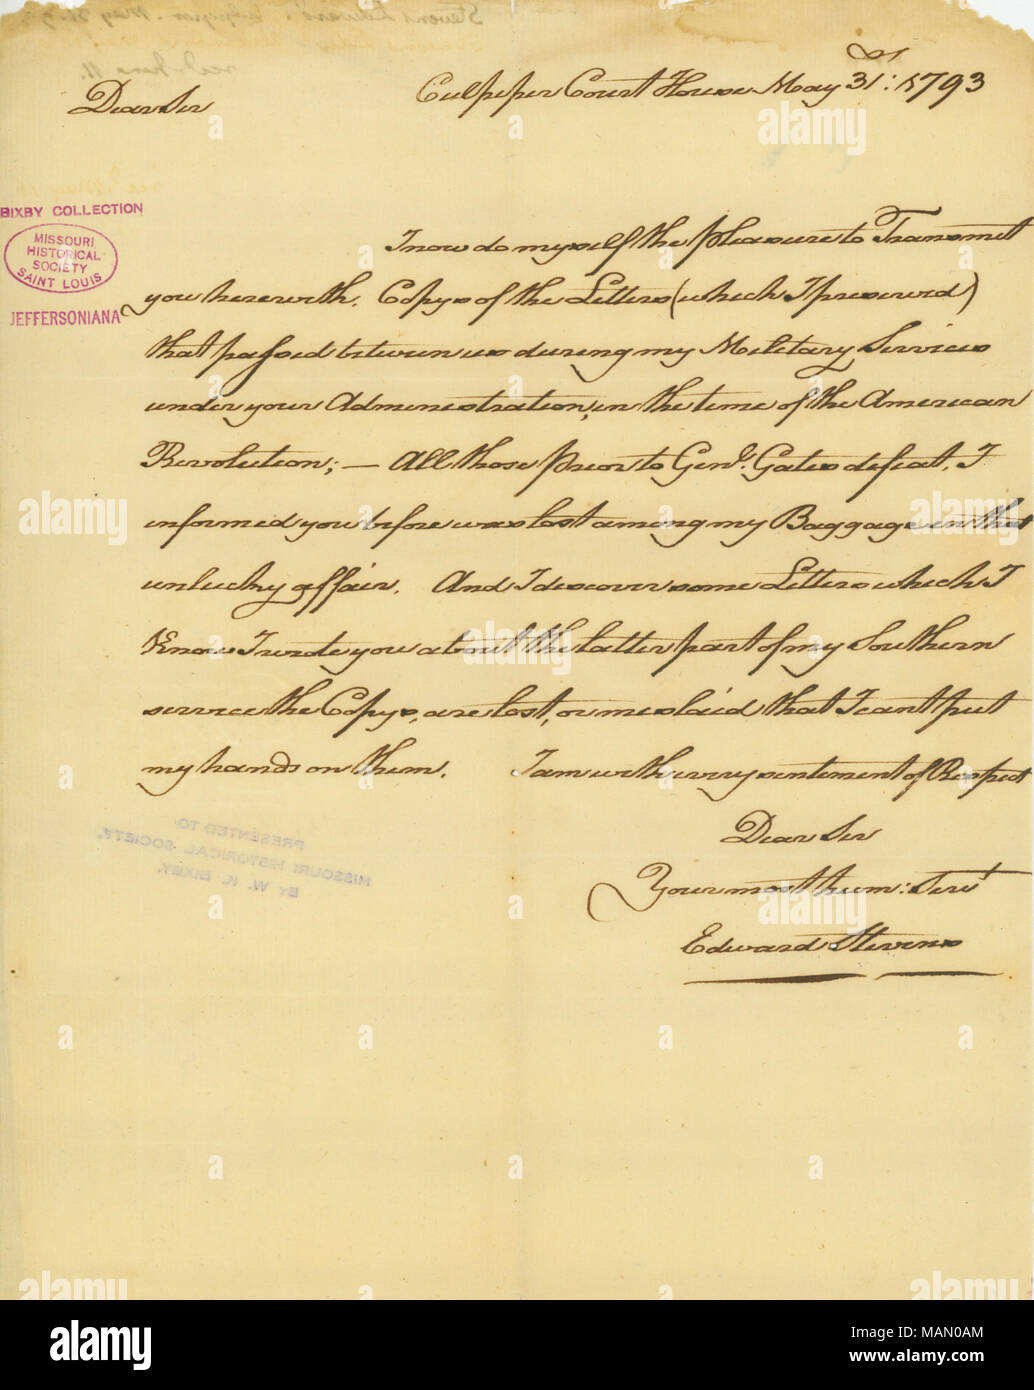 Culpeper Court House May 31st: 1793
Dear Sir
BIXBY COLLECTION
MISSOURI
HISTORICAL
SOCIETY
SAINT LOUIS
JEFFERSONIANA
I now do myself the pleasure to Transmit
you herewith. Copys of the Letters (which I preserved)
that passed between us during my Military Services
under your Administration, in the time of the American
Revolution; — All those Prior to Genl. Gates defeat, I
informed you before was lost among my Baggage in that
unlucky affair. And I discover some Letters which I
Know I wrote you about the latter part of my Southern
service the Copys, are lost, or mislaid that I cant put
my hands on them. I am with every sentiment of Respect
Dear Sir
Your most hum: Servt
Edward Stevens
PRESENTED TO
MISSOURI HISTORICAL SOCIETY,
BY W. K. BIXBY.
alamy
Image ID: MAN0AM
www.alamy.com